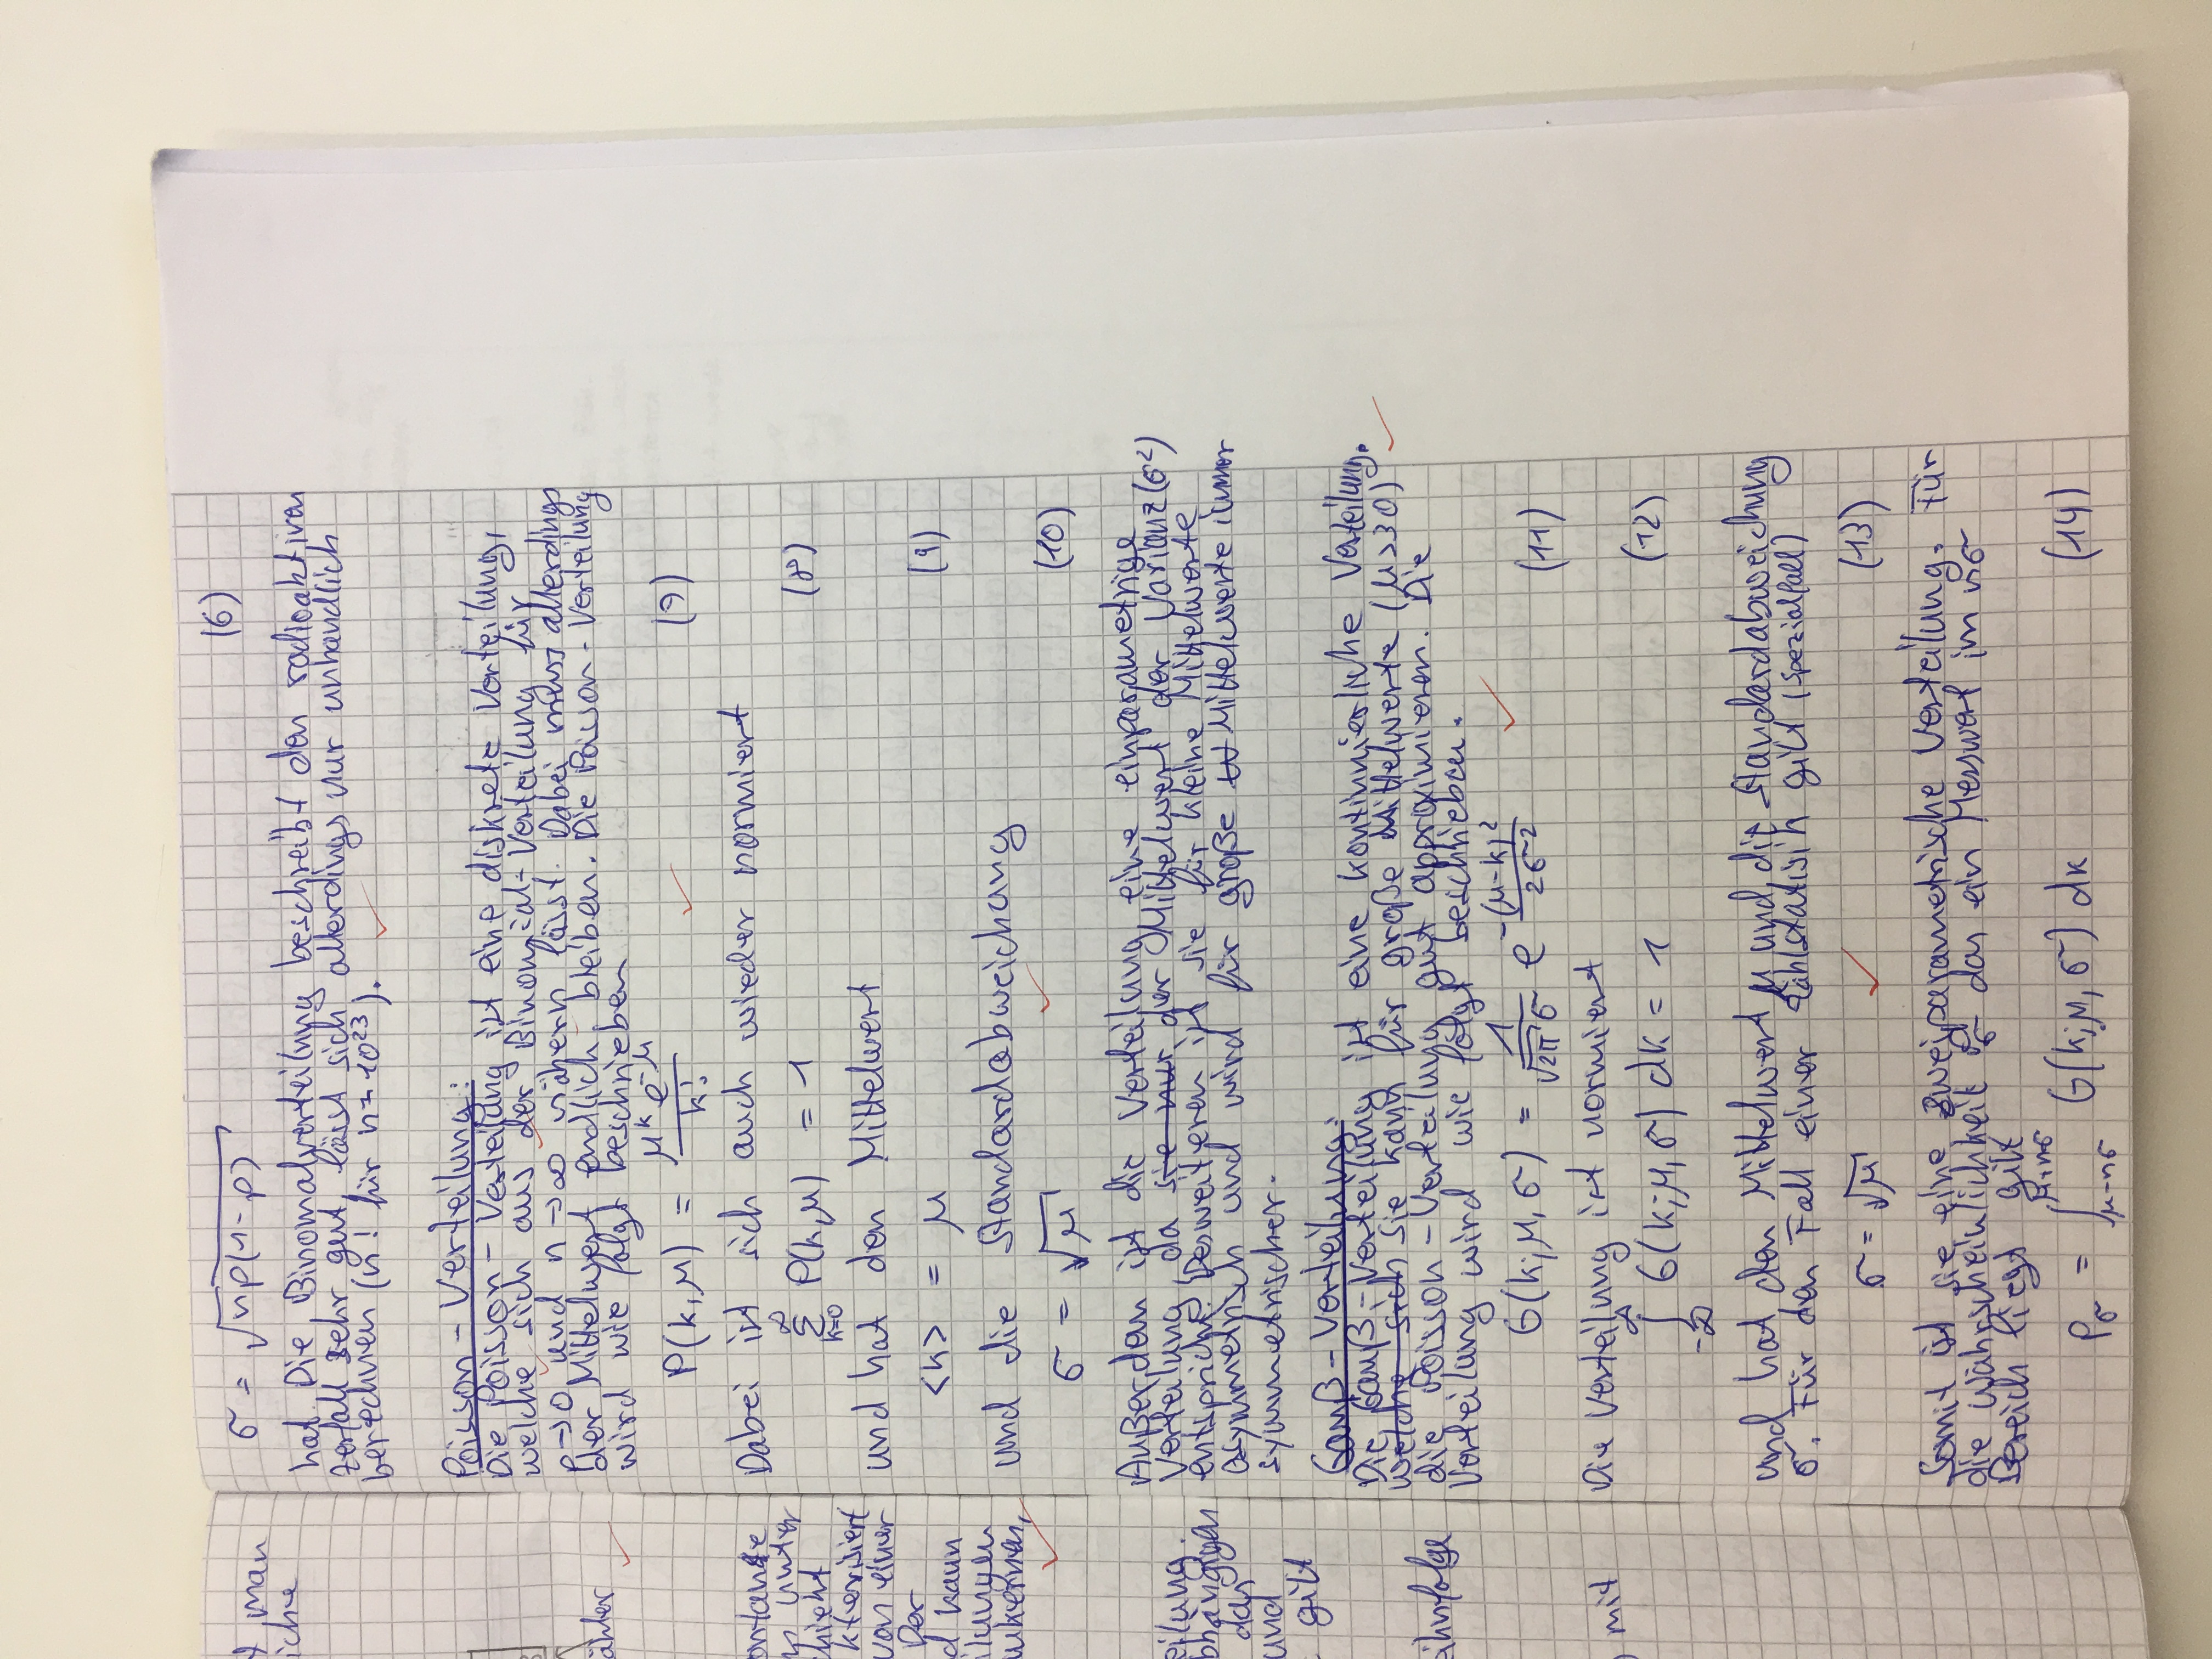 t man
iche
ähler
ontane
unter
hieht
kterisiert
von einer
Der
d kann
ilungen
mkernen,
eilung.
bhängigen
das
und
gilt
eihnfolge
mit
σ = √np(1-p) (6)
hat. Die Binomalverteilung beschreibt den radioaktiven
Zerfall sehr gut, lässt sich allerdings nur unhandlich
berechnen (n! für n≈10²³).
Poisson-Verteilung:
Die Poisson-Verteilung ist eine diskrete Verteilung,
welche sich aus der Binomial-Verteilung für
p→0 und n→∞ nähern lässt. Dabei muss allerdings
der Mittelwert endlich bleiben. Die Poisson-Verteilung
wird wie folgt beschrieben
P(k,μ) = μ^k e^-μ / k! (7)
Dabei ist sich auch wieder normiert
∑_{k=0}^∞ P(k,μ) = 1 (8)
und hat den Mittelwert
<k> = μ (9)
und die Standardabweichung
σ = √μ (10)
Außerdem ist die Verteilung eine einparametrige
Verteilung, da sie nur der Mittelwert der Varianz (σ²)
entspricht. Desweiteren ist sie für kleine Mittelwerte
asymmetrisch und wird für große W Mittelwerte immer
symmetrischer.
Gauß-Verteilung:
Die Gauß-Verteilung ist eine kontinuierliche Verteilung.
welche sich sie kann für große Mittelwerte (μ>30)
die Poisson-Verteilung gut approximieren. Die
Verteilung wird wie folgt beschrieben.
G(k;μ,σ) = 1/(√2π σ) e^{-(μ-k)²/2σ²} (11)
Die Verteilung ist normiert
∫_{-∞}^{∞} G(k;μ,σ) dk = 1 (12)
und hat den Mittelwert μ und die Standardabweichung
σ. Für den Fall einer Zählstatisik gilt (Spezialfall)
σ = √μ (13)
Somit ist sie eine zweiparametrische Verteilung. Für
die Wahrscheinlichkeit das ein Messwert im nσ
Bereich liegt gilt
P_σ = ∫_{μ-nσ}^{μ+nσ} G(k;μ,σ) dk (14)